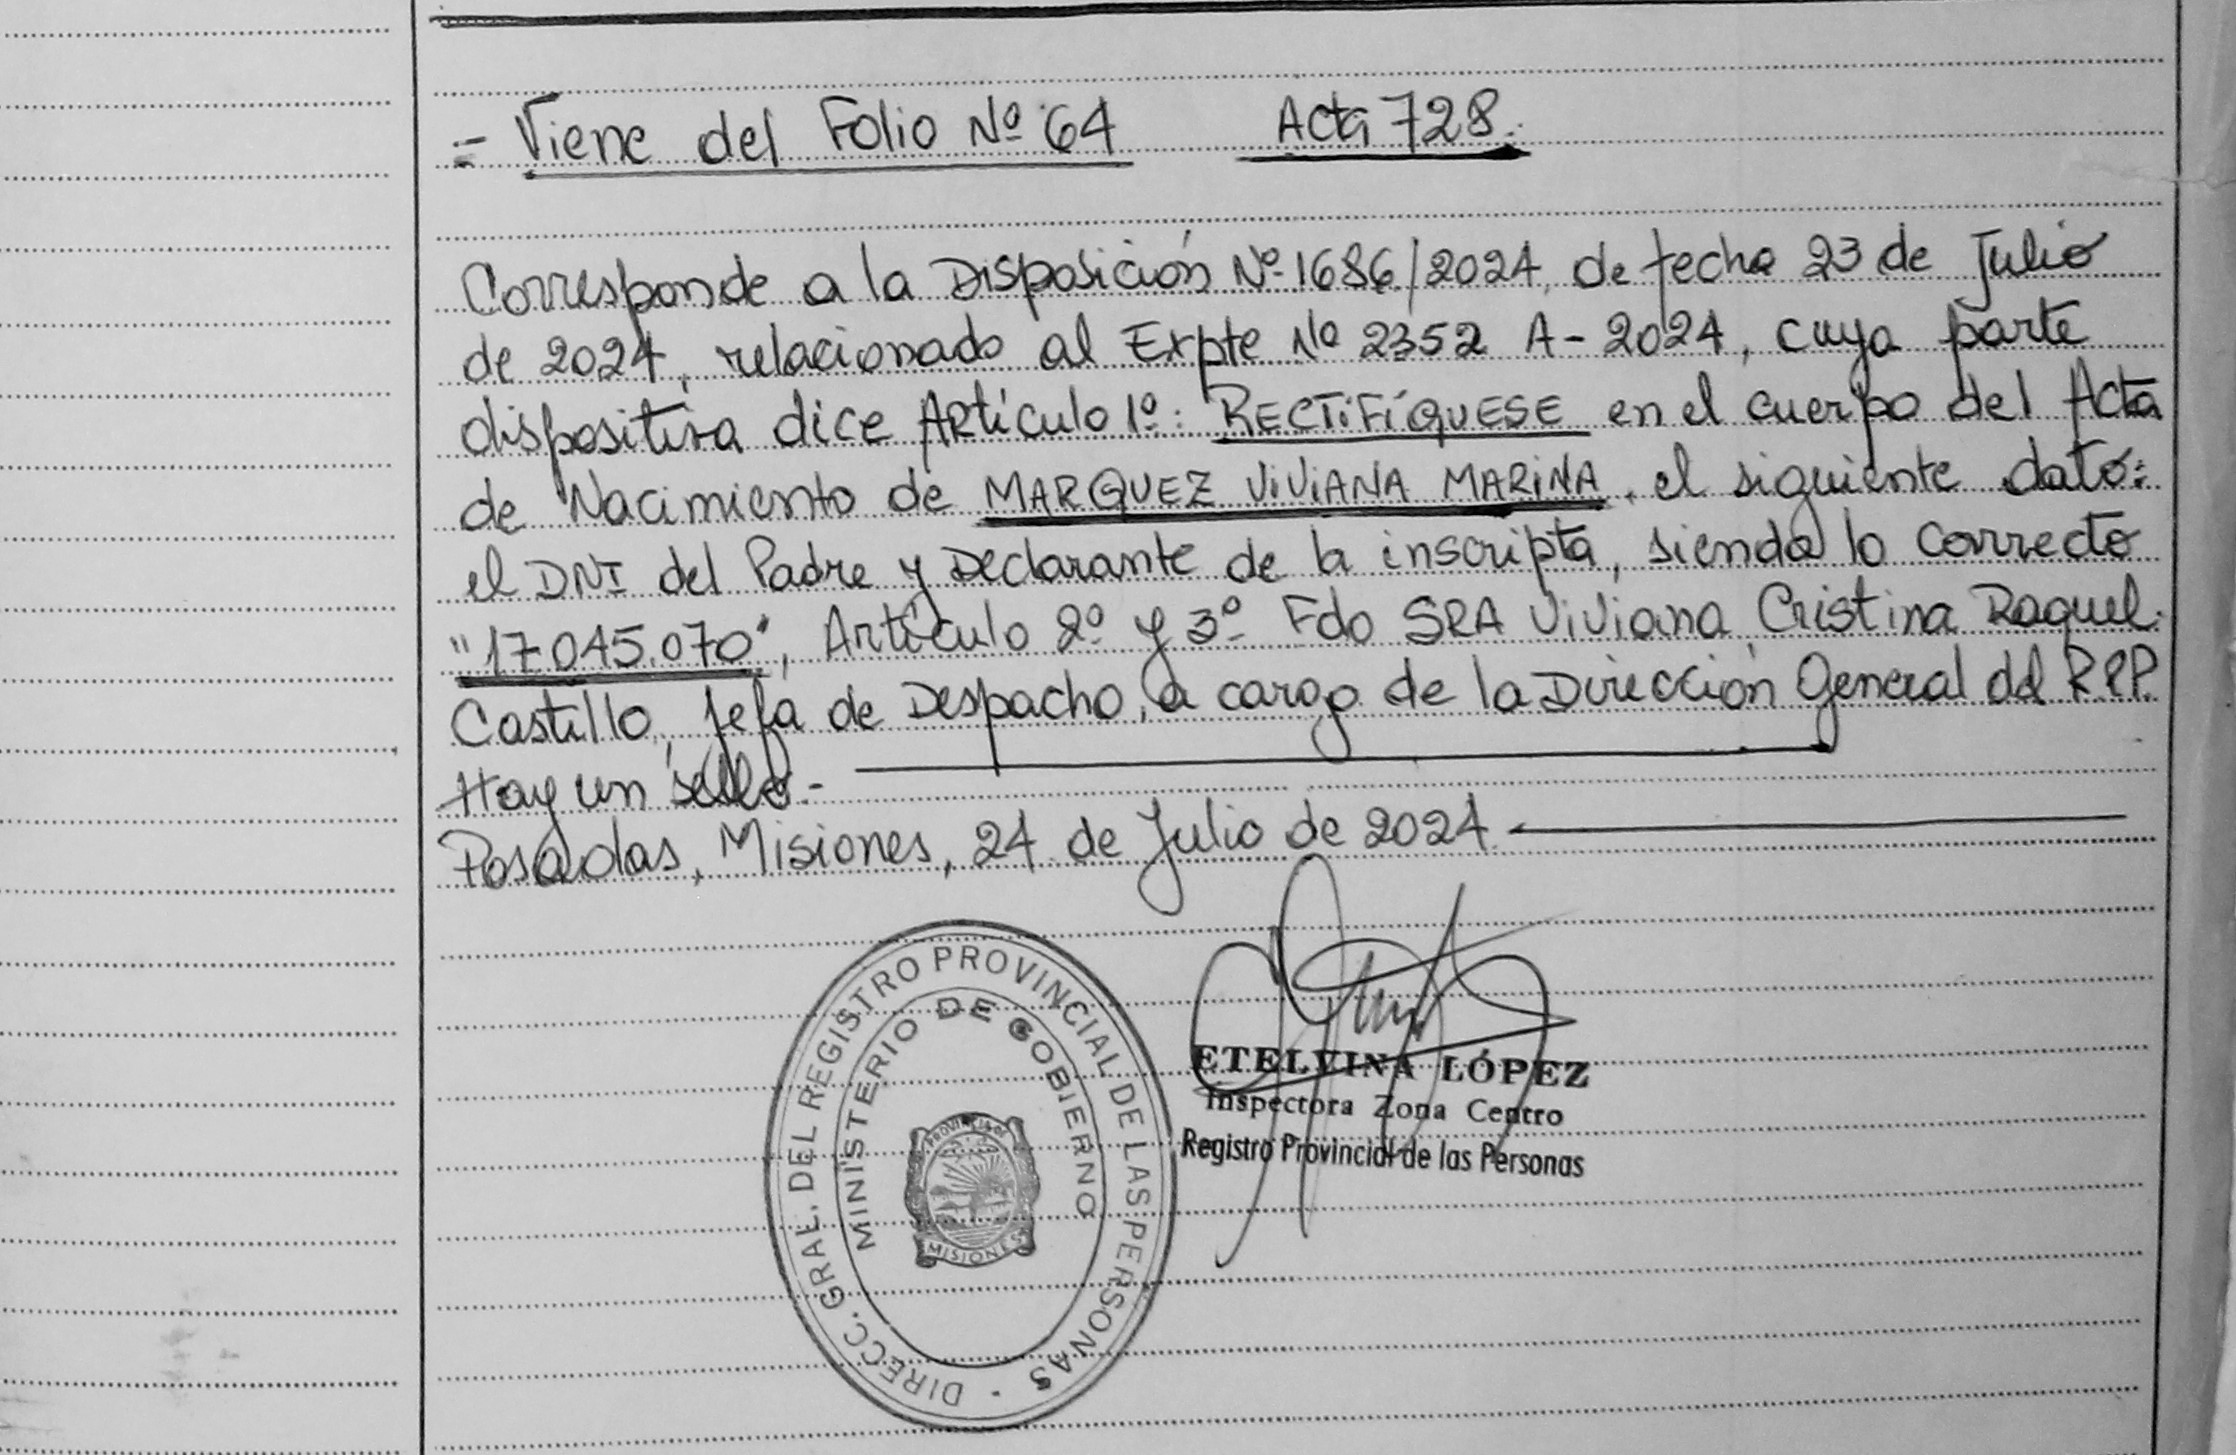 = Viene del Folio Nº 64 Acta 728.
Corresponde a la Disposición Nº 1686/2024, de fecha 23 de Julio
de 2024, relacionado al Expte Nº 2352 A-2024, cuya parte
dispositiva dice Artículo 1º: RECTIFÍQUESE en el cuerpo del Acta
de Nacimiento de MARQUEZ VIVIANA MARINA, el siguiente dato:
el DNI del Padre y Declarante de la inscripta, siendo lo correcto
"17.045.070", Artículo 2º y 3º Fdo SRA Viviana Cristina Raquel
Castillo, Jefa de Despacho, a cargo de la Dirección General del RPP.
Hay un sello.-
Posadas, Misiones, 24 de Julio de 2024.
DIRECC. GRAL. DEL REGISTRO PROVINCIAL DE LAS PERSONAS
MINISTERIO DE GOBIERNO
PROVINCIA DE
MISIONES
ETELVINA LÓPEZ
Inspectora Zona Centro
Registro Provincial de las Personas